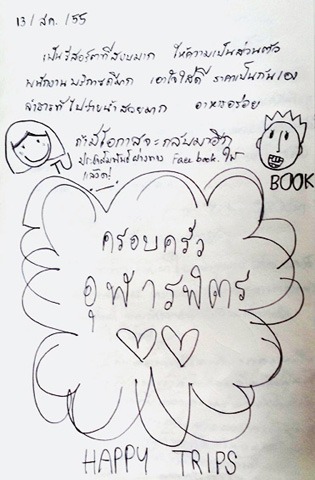 13 / สค. / 55
เป็นรีสอร์ตที่สงบมาก ให้ความเป็นส่วนตัว
พนักงานบริการดีมาก เอาใจใส่ดี ราคาเป็นกันเอง
อาหารอร่อย
ถ้ามีโอกาสจะกลับมาอีก
ประชาสัมพันธ์ผ่านทาง Face book. ให้
แล้วด้วย!
BOOK
ครอบครัว
อุฬารพิตร
HAPPY TRIPS